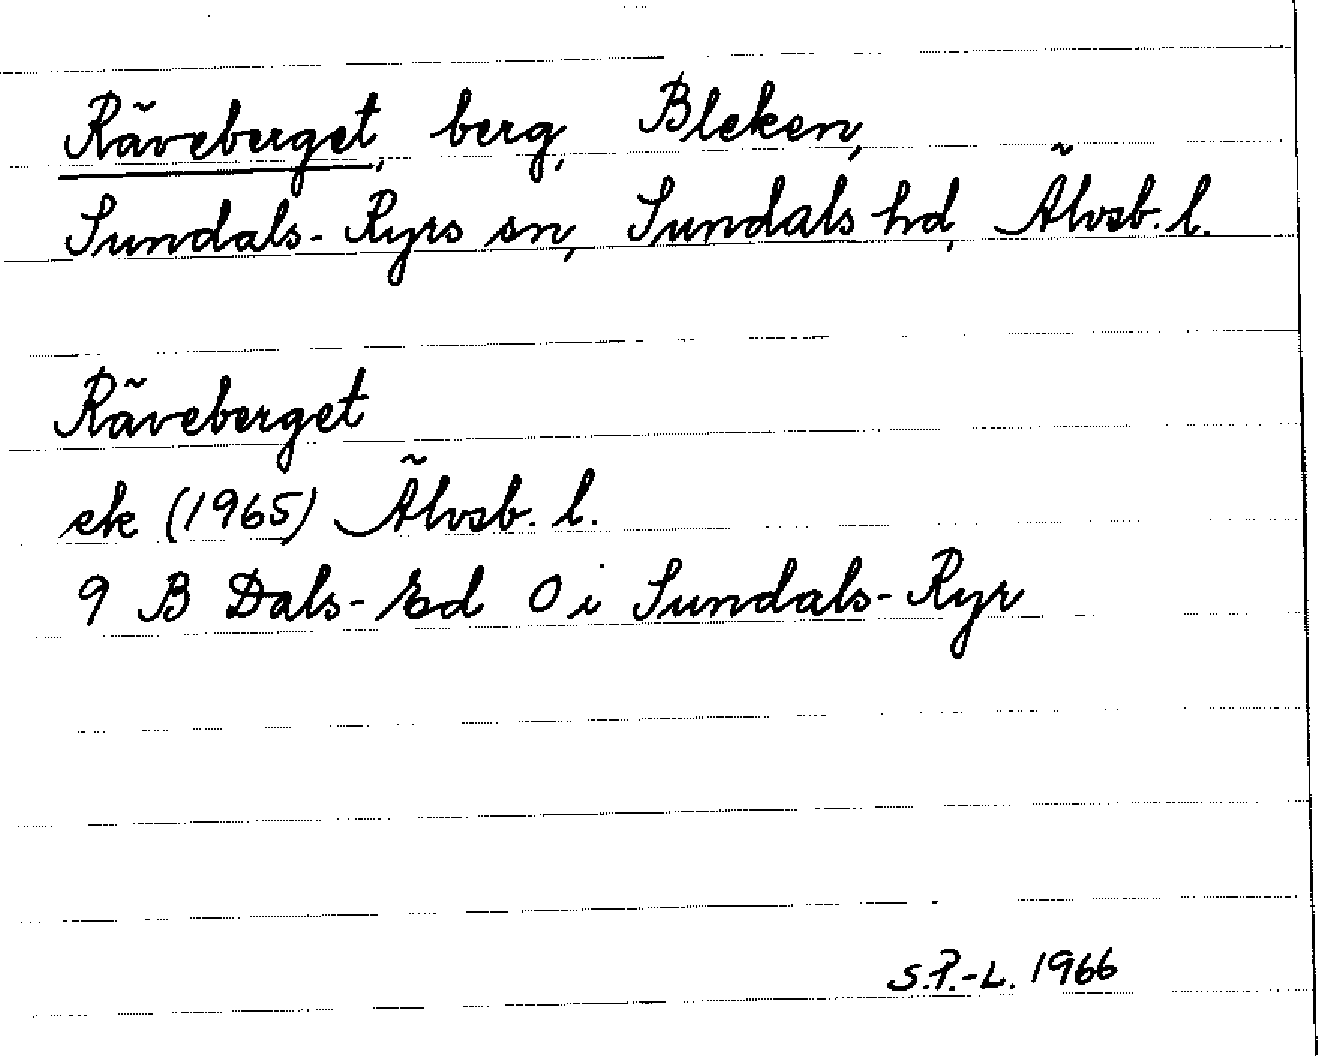 Räveberget, berg, Bleken,
Sundals-Ryrs sn, Sundals hd, Älvsb. l.
Räveberget
ek (1965) Älvsb. l.
9 B Dals-Ed O i Sundals-Ryr
S.P.-L. 1966